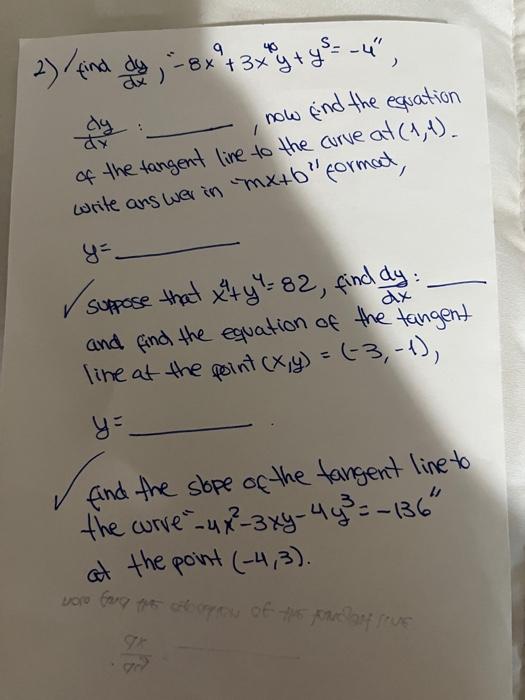 2) find dy/dx, "-8x⁹+3x⁴⁰y+y⁵=-4",
dy/dx : ______, now find the equation
of the tangent line to the curve at (1,1).
write answer in "mx+b" format,
y=______
✓ suppose that x⁴+y⁴=82, find dy/dx : ____
and find the equation of the tangent
line at the point (x,y) = (-3,-1),
y=______.
✓ find the slope of the tangent line to
the curve "-4x²-3xy-4y³=-136"
at the point (-4,3).